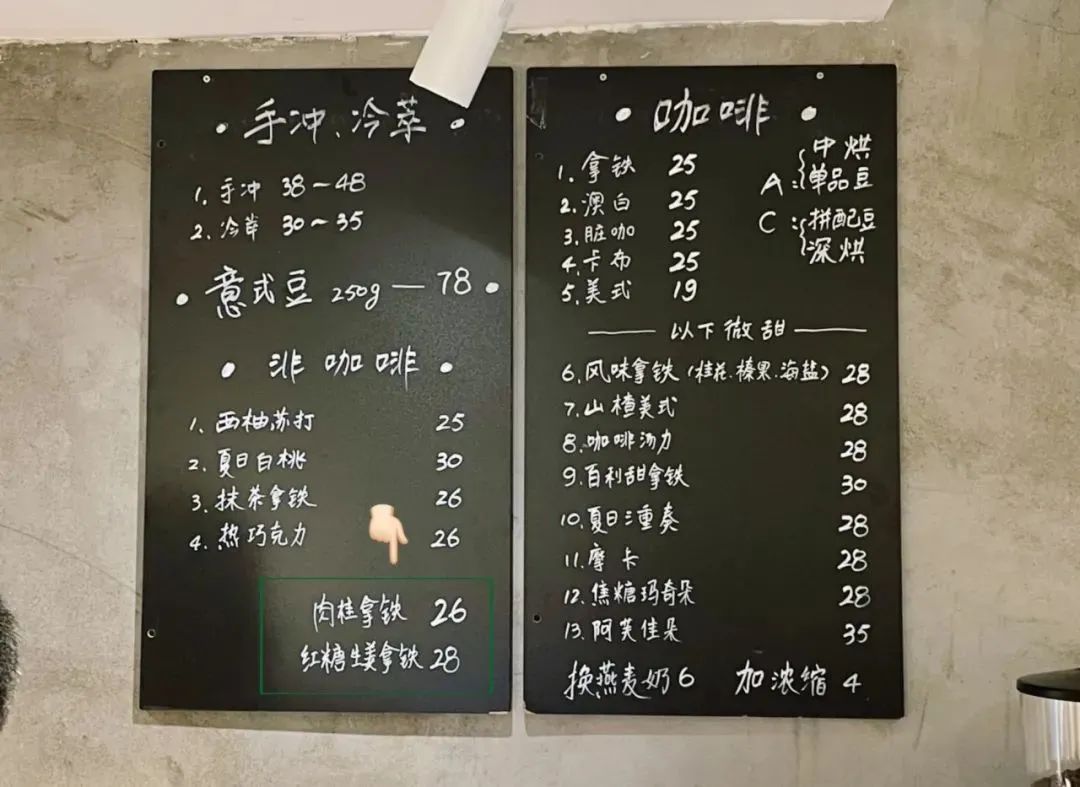 • 手冲、冷萃 •
1. 手冲 38~48
2. 冷萃 30~35
• 意式豆 250g — 78 •
• 非咖啡 •
1. 西柚苏打 25
2. 夏日白桃 30
3. 抹茶拿铁 26
4. 热巧克力 26
肉桂拿铁 26
红糖生姜拿铁 28
• 咖啡 •
1. 拿铁 25
2. 澳白 25
3. 脏咖 25
4. 卡布 25
5. 美式 19
A: 中烘
单品豆
C: 拼配豆
深烘
—— 以下微甜 ——
6. 风味拿铁(桂花.榛果.海盐) 28
7. 山楂美式 28
8. 咖啡汤力 28
9. 百利甜拿铁 30
10. 夏日二重奏 28
11. 摩卡 28
12. 焦糖玛奇朵 28
13. 阿芙佳朵 35
换燕麦奶 6 加浓缩 4